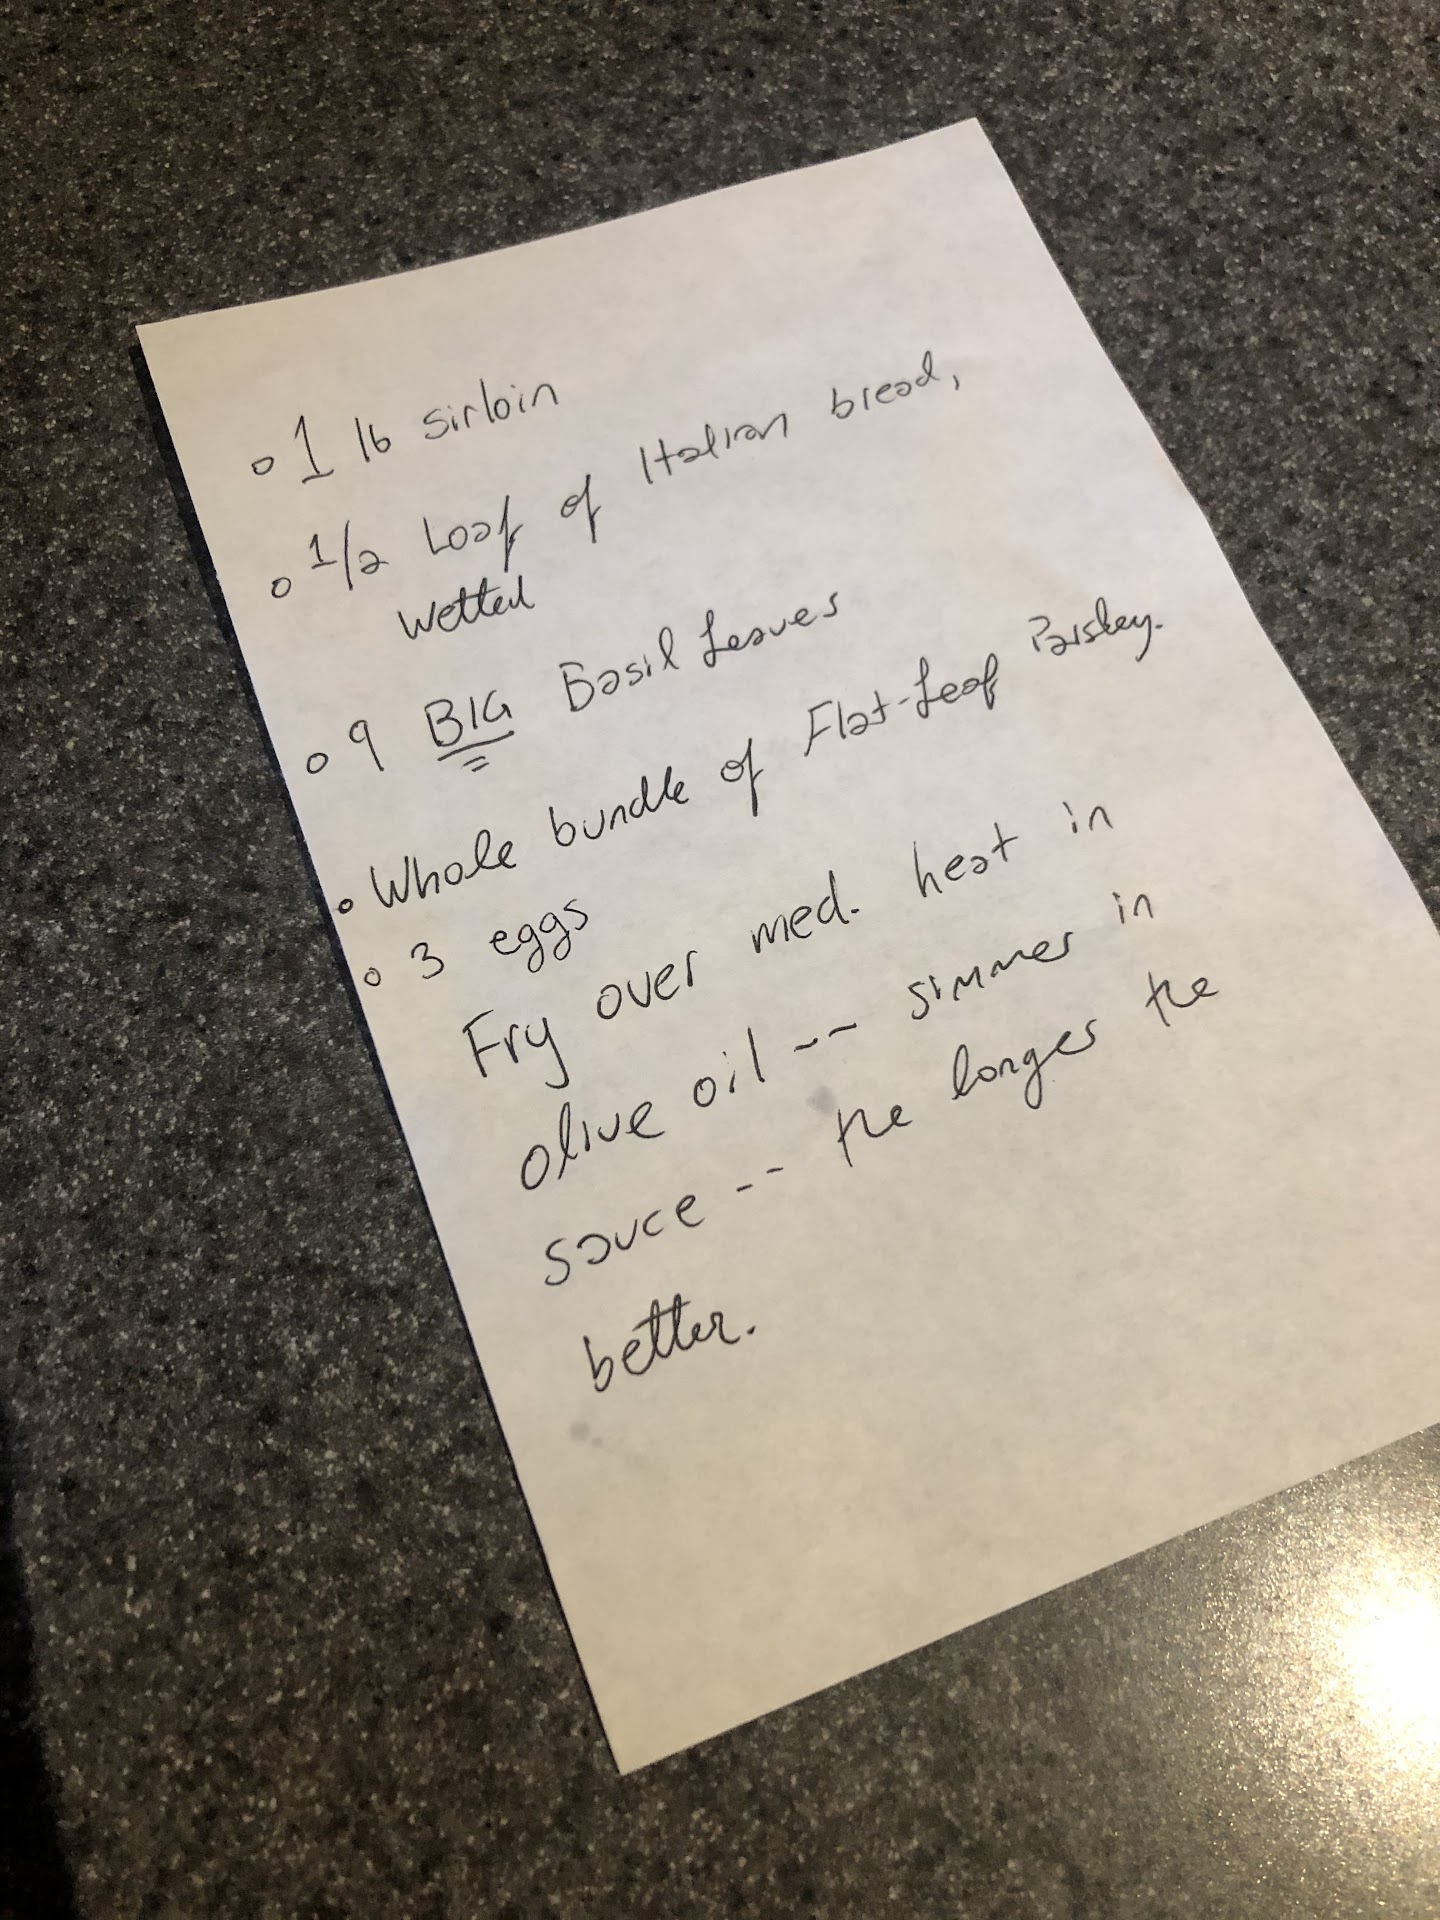 ◦ 1 lb sirloin
◦ 1/2 Loaf of Italian bread,
wetted
◦ 9 BIG Basil Leaves
◦ Whole bundle of Flat-Leaf Parsley.
◦ 3 eggs
Fry over med. heat in
olive oil -- simmer in
sauce -- the longer the
better.